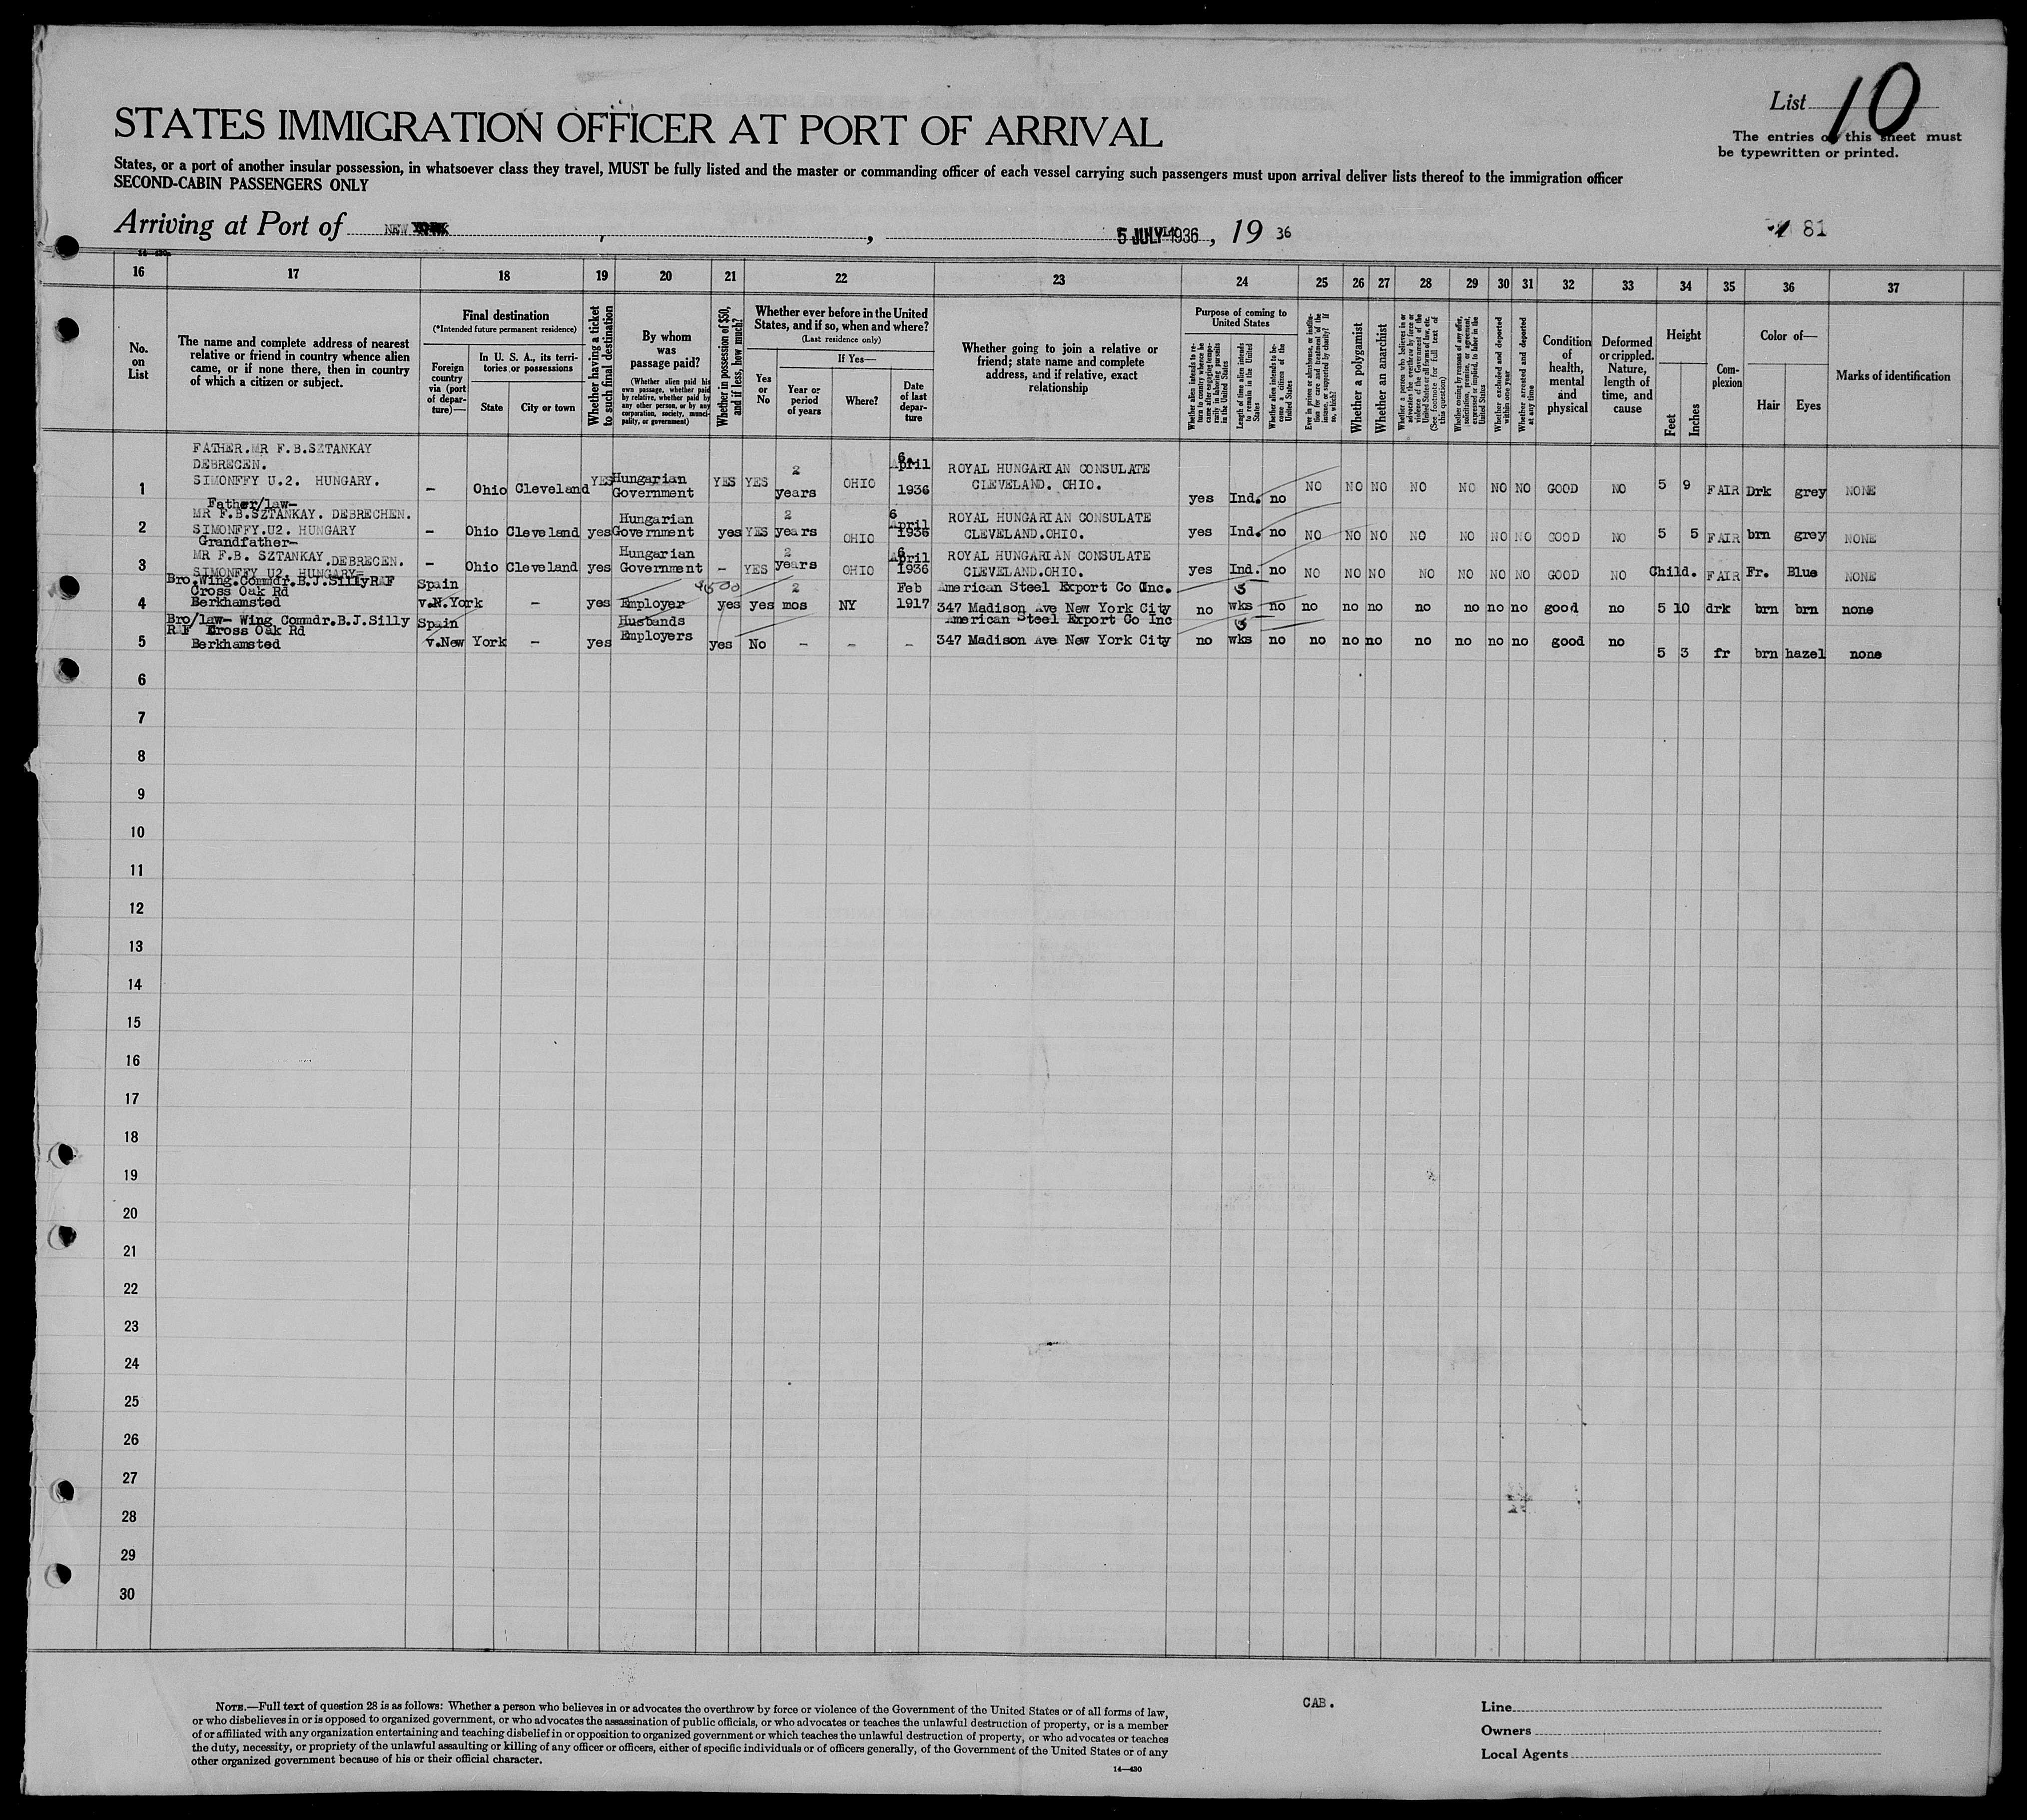 List 10
The entries on this sheet must
be typewritten or printed.
STATES IMMIGRATION OFFICER AT PORT OF ARRIVAL
States, or a port of another insular possession, in whatsoever class they travel, MUST be fully listed and the master or commanding officer of each vessel carrying such passengers must upon arrival deliver lists thereof to the immigration officer
SECOND-CABIN PASSENGERS ONLY
Arriving at Port of NEW YORK , 5 JULY 1936 , 19 36
81
16 17 18 19 20 21 22 23 24 25 26 27 28 29 30 31 32 33 34 35 36 37
No.
on
List
The name and complete address of nearest
relative or friend in country whence alien
came, or if none there, then in country
of which a citizen or subject.
Final destination
(*Intended future permanent residence)
Foreign
country
via (port
of depar-
ture)—
In U. S. A., its terri-
tories or possessions
State
City or town
Whether having a ticket
to such final destination
By whom
was
passage paid?
(Whether alien paid his
own passage, whether paid
by relative, whether paid by
any other person, or by any
corporation, society, munici-
pality, or government)
Whether in possession of $50,
and if less, how much?
Whether ever before in the United
States, and if so, when and where?
(Last residence only)
Yes
or
No
If Yes—
Year or
period
of years
Where?
Date
of last
depar-
ture
Whether going to join a relative or
friend; state name and complete
address, and if relative, exact
relationship
Purpose of coming to
United States
Whether alien intends to re-
turn to country whence he
came after engaging tempo-
rarily in laboring pursuits
in the United States
Length of time alien intends
to remain in the United
States
Whether alien intends to be-
come a citizen of the
United States
Ever in prison or almshouse, or institu-
tion for care and treatment of the
insane, or supported by charity? If
so, which?
Whether a polygamist
Whether an anarchist
Whether a person who believes in or
advocates the overthrow by force or
violence of the Government of the
United States or all forms of law, etc.
(See footnote for full text of
this question)
Whether coming by reason of any offer,
solicitation, promise, or agreement,
expressed or implied, to labor in the
United States
Whether excluded and deported
within one year
Whether arrested and deported
at any time
Condition
of
health,
mental
and
physical
Deformed
or crippled.
Nature,
length of
time, and
cause
Height
Feet
Inches
Com-
plexion
Color of—
Hair
Eyes
Marks of identification
FATHER.MR F.B.SZTANKAY
DEBRECEN.
SIMONFFY U.2. HUNGARY.
1 – Ohio Cleveland YES Hungarian Government YES YES 2 years OHIO 6 April 1936 ROYAL HUNGARIAN CONSULATE CLEVELAND. OHIO. yes Ind. no NO NO NO NO NO NO NO GOOD NO 5 9 FAIR Drk grey NONE
Father/law–
MR F.B.SZTANKAY. DEBRECHEN.
SIMONFFY.U2. HUNGARY
2 – Ohio Cleveland yes Hungarian Government yes YES 2 years OHIO 6 April 1936 ROYAL HUNGARIAN CONSULATE CLEVELAND.OHIO. yes Ind. no NO NO NO NO NO NO NO GOOD NO 5 5 FAIR brn grey NONE
Grandfather–
MR F.B. SZTANKAY.DEBRECEN.
SIMONFFY U2. HUNGARY–
3 – Ohio Cleveland yes Hungarian Government – YES 2 years OHIO 6 April 1936 ROYAL HUNGARIAN CONSULATE CLEVELAND.OHIO. yes Ind. no NO NO NO NO NO NO NO GOOD NO Child. FAIR Fr. Blue NONE
Bro.Wing.Commdr.B.J.SillyRAF
Cross Oak Rd
Berkhamsted
4 Spain v.N.York – yes Employer yes yes 2 mos NY Feb 1917 American Steel Export Co Inc. 347 Madison Ave New York City no 3 wks no no no no no no no no good no 5 10 drk brn brn none
Bro/law– Wing Commdr.B.J.Silly
RAF Cross Oak Rd
Berkhamsted
5 Spain v.New York – yes Husbands Employers yes No – – – American Steel Export Co Inc 347 Madison Ave New York City no 3 wks no no no no no no no no good no 5 3 fr brn hazel none
6
7
8
9
10
11
12
13
14
15
16
17
18
19
20
21
22
23
24
25
26
27
28
29
30
NOTE.—Full text of question 28 is as follows: Whether a person who believes in or advocates the overthrow by force or violence of the Government of the United States or of all forms of law,
or who disbelieves in or is opposed to organized government, or who advocates the assassination of public officials, or who advocates or teaches the unlawful destruction of property, or is a member
of or affiliated with any organization entertaining and teaching disbelief in or opposition to organized government or which teaches the unlawful destruction of property, or who advocates or teaches
the duty, necessity, or propriety of the unlawful assaulting or killing of any officer or officers, either of specific individuals or of officers generally, of the Government of the United States or of any
other organized government because of his or their official character.
14—430
CAB.
Line
Owners
Local Agents